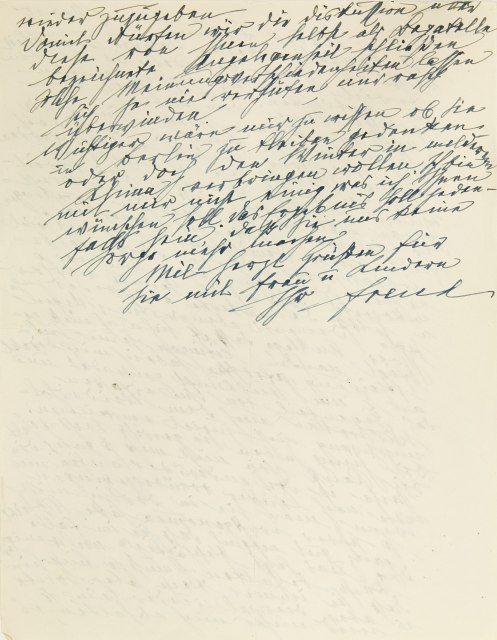 wieder zuzugeben
Damit dürfen wir die Diskussion über
diese von Ihnen selbst als Bagatelle
bezeichnete Angelegenheit schließen
Meinungsverschiedenheiten lassen
sich ja nie verhüten und rasch
überwinden
Wichtiger wäre mir zu wissen ob Sie
in Berlin zu bleiben gedenken
oder doch den Winter in milderem
Klima verbringen wollen
mir nur nicht einig was ich Ihnen
wünschen soll, das Ergebnis soll jeden-
falls sein, daß Sie uns keine
Sorge mehr machen
Mit herzl Grüßen für
Sie mit Frau u Kindern
Ihr Freud